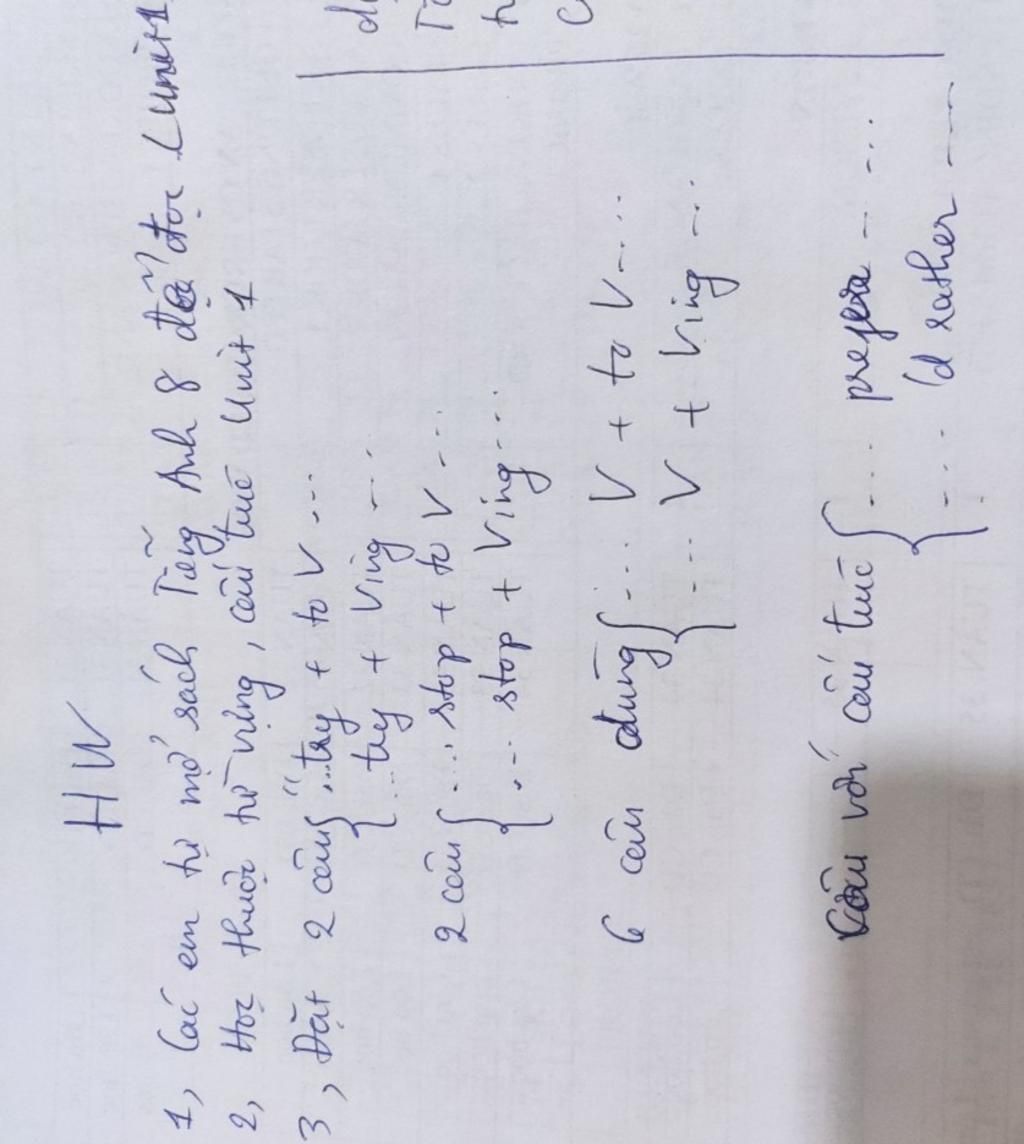 HW
1, Các em tự mở sách Tiếng Anh 8 để đọc (Unit 1
2, Học thuộc từ vựng, cấu trúc Unit 1
3, Đặt 2 câu { ... try + to V ...
... try + Ving ...
2 câu { ... stop + to V ...
... stop + Ving ...
6 câu dùng { ... V + to V ...
... V + Ving ...
Câu với cấu trúc { ... prefer ...
... 'd rather ...